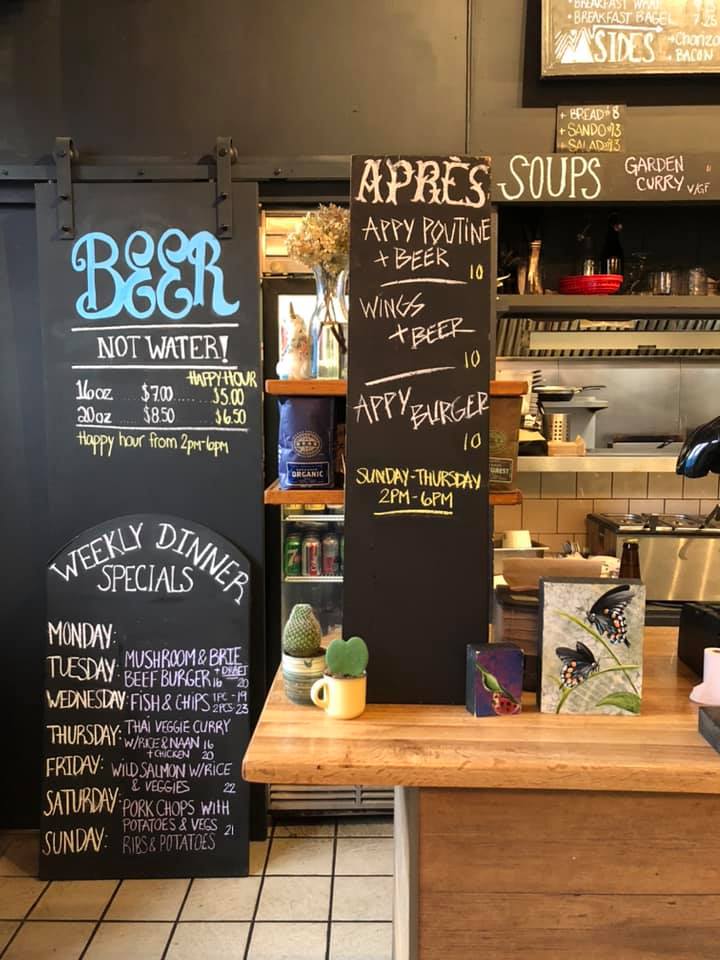 BREAKFAST WRAP
• BREAKFAST BAGEL 7.25
SIDES
BACON
+ BREAD $8
+ SANDO $13
+ SALAD $13
SOUPS
GARDEN
CURRY V/GF
BEER
NOT WATER!
HAPPY HOUR
16oz $7.00 $5.00
20oz $8.50 $6.50
Happy hour from 2pm-6pm
APRÈS
APPY POUTINE
+ BEER
10
WINGS
+ BEER
10
APPY BURGER
10
SUNDAY-THURSDAY
2PM-6PM
ORGANIC
WEEKLY DINNER
SPECIALS
MONDAY:
TUESDAY: MUSHROOM & BRIE
BEEF BURGER 16 20
WEDNESDAY: FISH & CHIPS 1PC - 19
2PCS: 23
THURSDAY: THAI VEGGIE CURRY
W/RICE & NAAN 16
+ CHICKEN 20
FRIDAY: WILD SALMON W/RICE
& VEGGIES 22
SATURDAY: PORK CHOPS WITH
POTATOES & VEGS 21
SUNDAY: RIBS & POTATOES